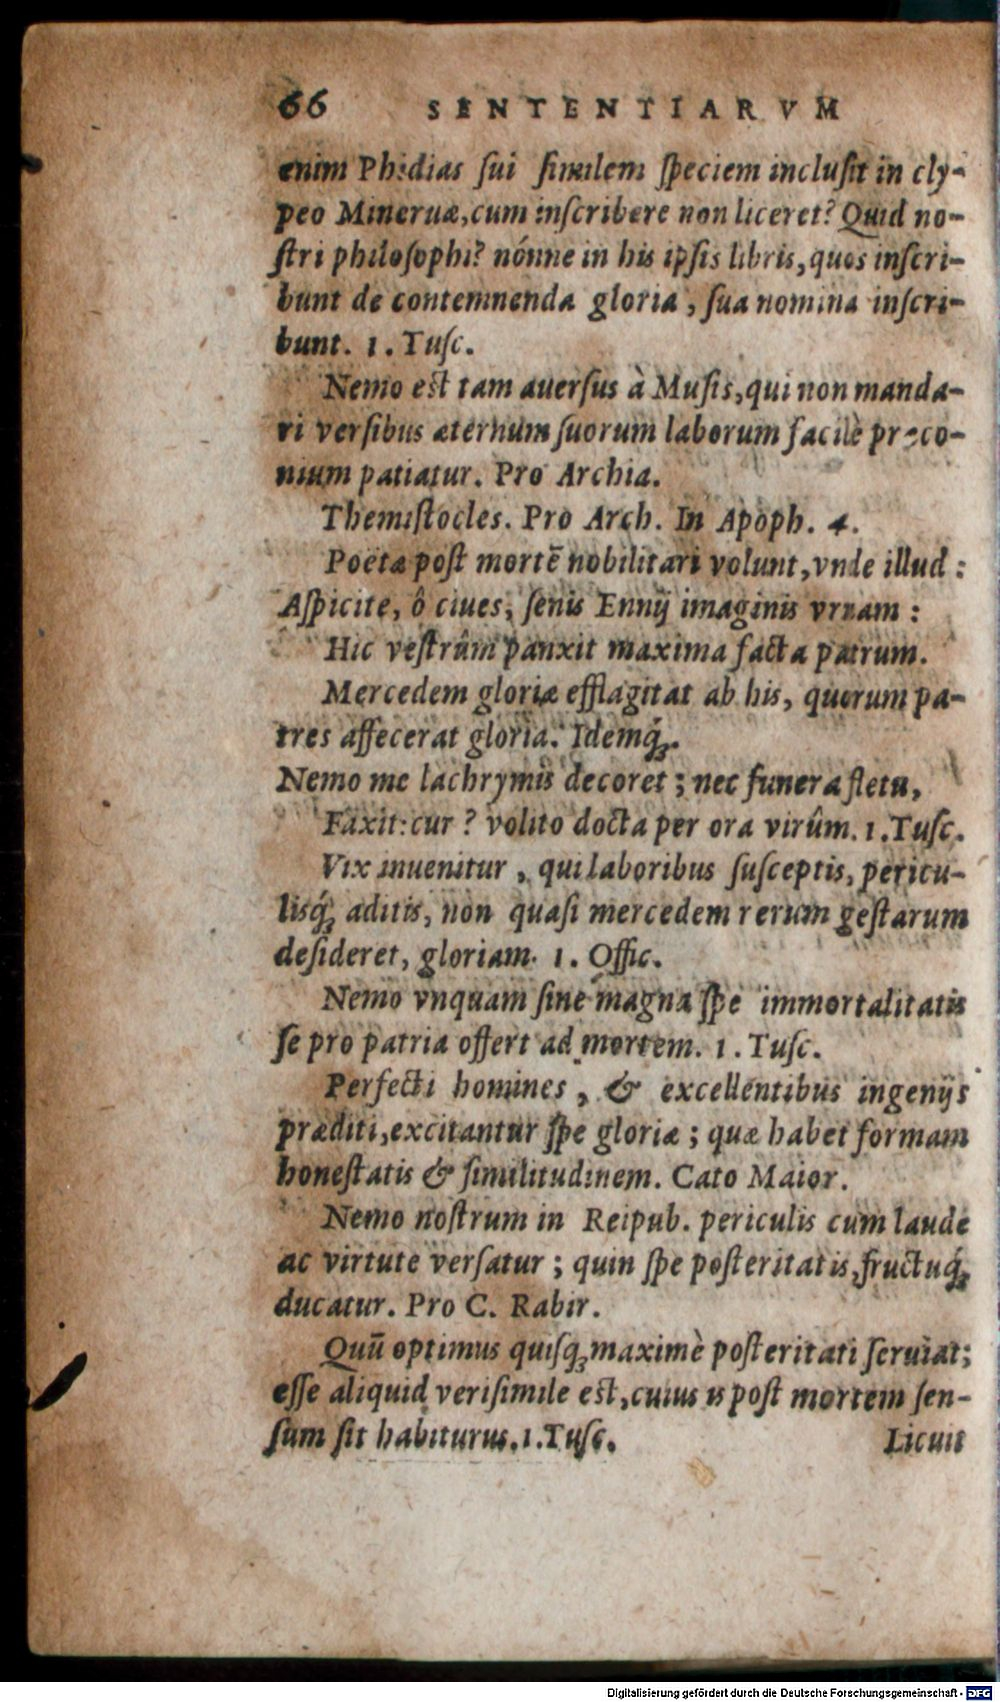 66 SENTENTIARVM
enim Phidias ſui ſimilem ſpeciem incluſit in cly-
peo Mineruæ, cum inſcribere non liceret? Quid no-
ſtri philoſophi? nónne in his ipſis libris, quos inſcri-
bunt de contemnenda gloria, ſua nomina inſcri-
bunt. 1. Tuſc.
Nemo est tam auerſus à Muſis, qui non manda-
ri verſibus æternum ſuorum laborum facilè præco-
nium patiatur. Pro Archia.
Themiſtocles. Pro Arch. In Apoph. 4.
Poëtæ poſt mortē nobilitari volunt, vnde illud:
Aſpicite, ô ciues, ſenis Ennij imaginis vrnam:
Hic veſtrûm panxit maxima facta patrum.
Mercedem gloriæ efflagitat ab his, quorum pa-
tres affecerat gloria. Idemq́;.
Nemo me lachrymis decoret; nec funera fletu,
Faxit: cur? volito docta per ora virûm. 1. Tuſc.
Vix inuenitur, qui laboribus ſuſceptis, pericu-
lisq́; aditis, non quaſi mercedem rerum geſtarum
deſideret, gloriam. 1. Offic.
Nemo vnquam ſine magna ſpe immortalitatis
ſe pro patria offert ad mortem. 1. Tuſc.
Perfecti homines, & excellentibus ingenijs
præditi, excitantur ſpe gloriæ; quæ habet formam
honeſtatis & ſimilitudinem. Cato Maior.
Nemo noſtrum in Reipub. periculis cum laude
ac virtute verſatur; quin ſpe poſteritatis, fructuq́;
ducatur. Pro C. Rabir.
Quū optimus quiſq; maximè poſteritati ſeruiat;
eſſe aliquid veriſimile est, cuius is poſt mortem ſen-
ſum ſit habiturus. 1. Tuſc. Licuit
Digitalisierung gefördert durch die Deutsche Forschungsgemeinschaft - DFG